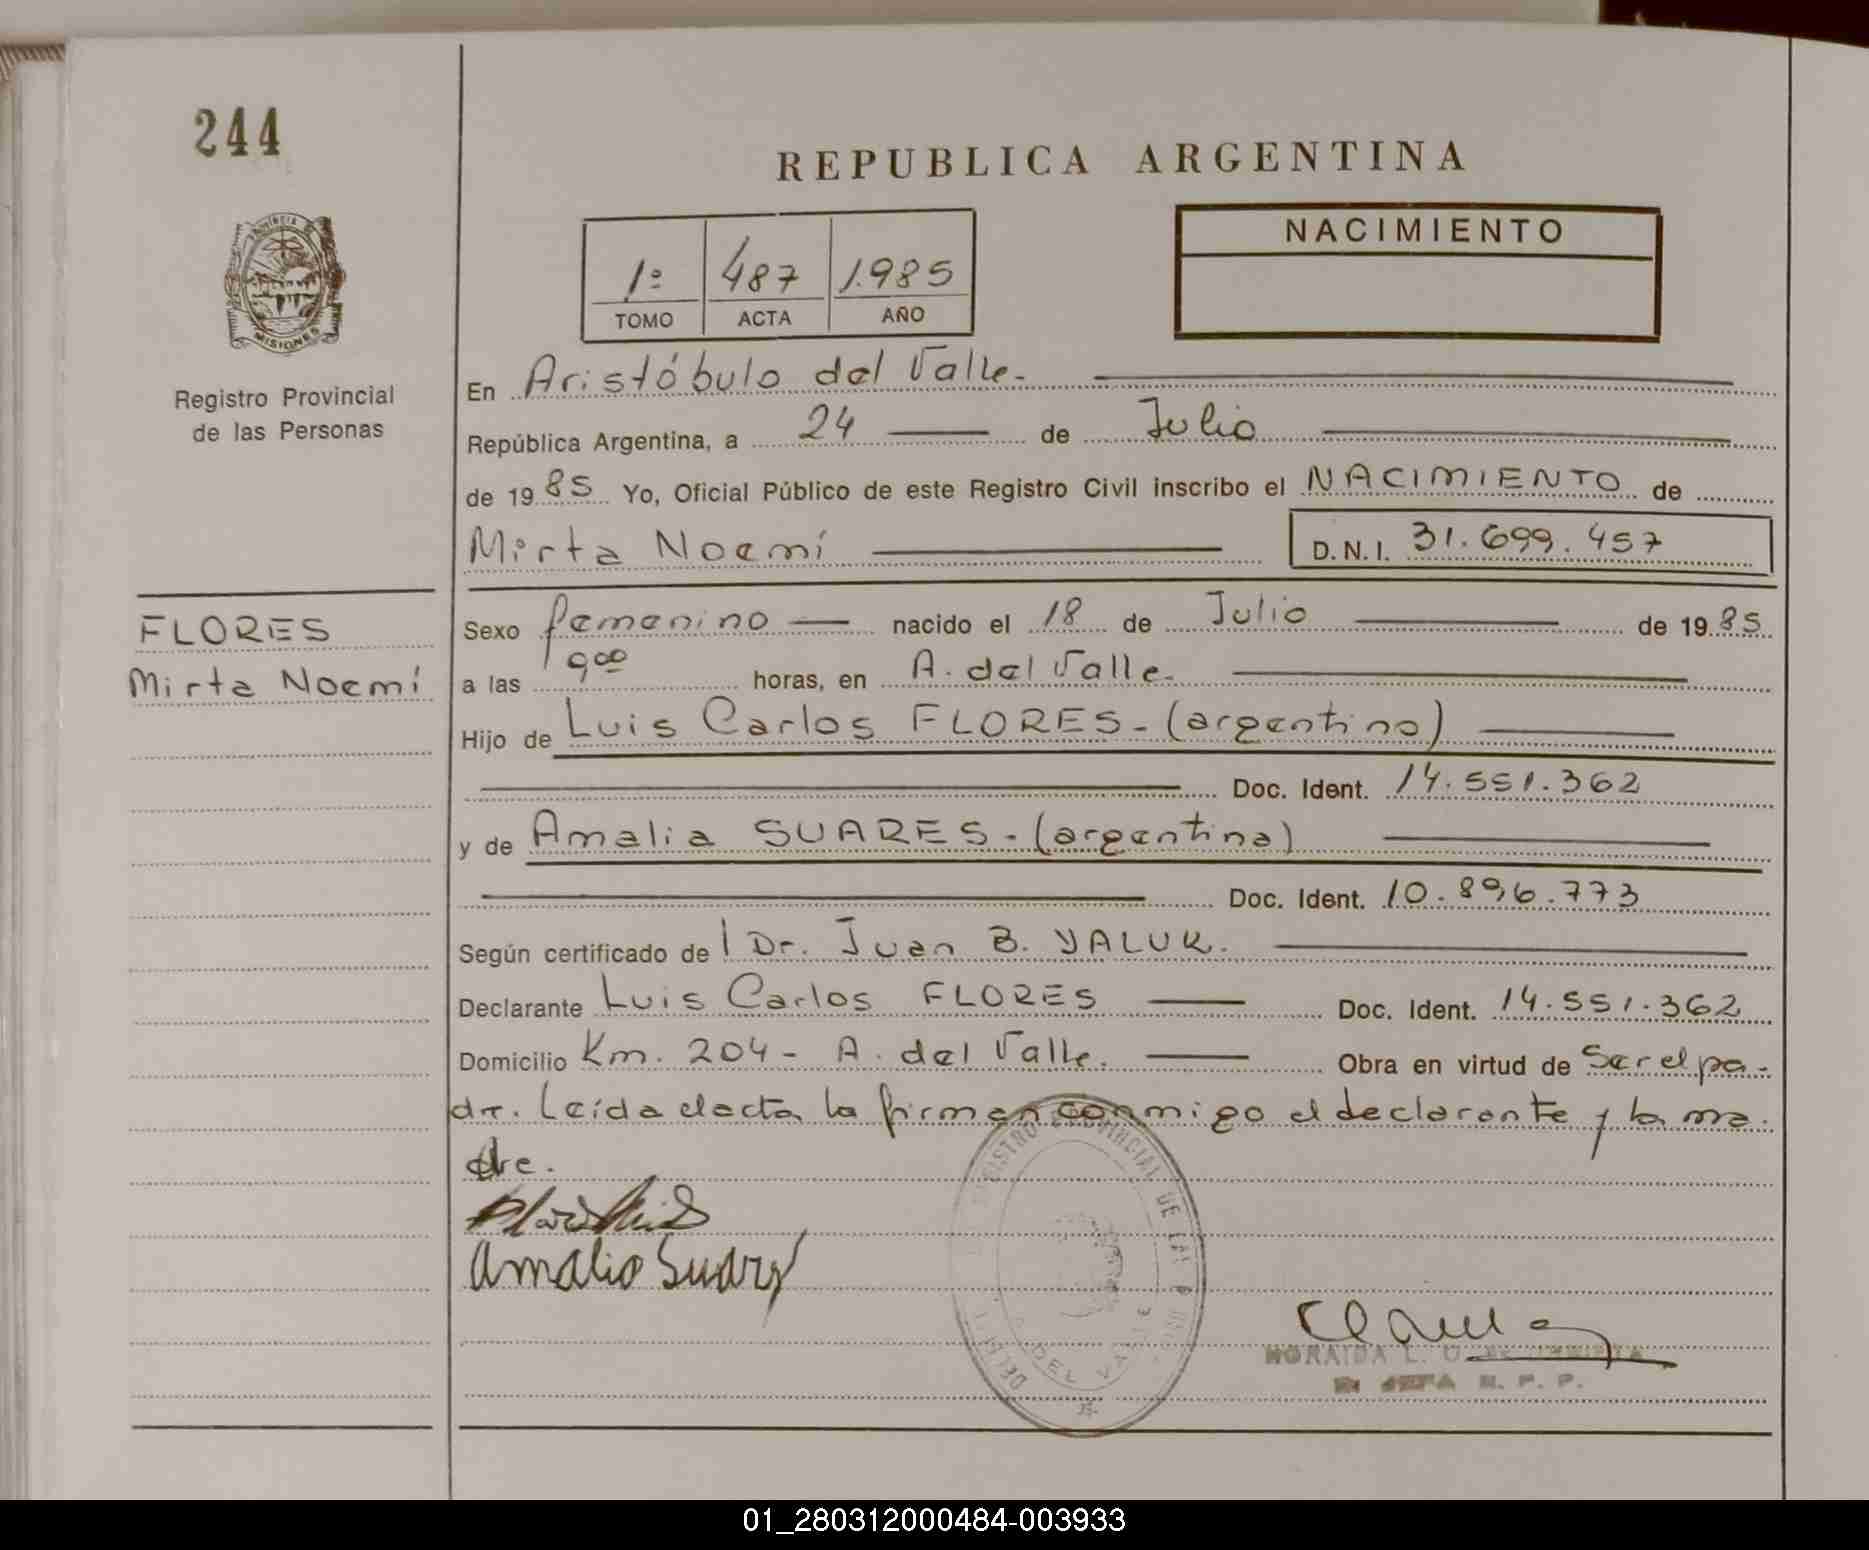 244
REPUBLICA ARGENTINA
PROVINCIA DE
MISIONES
Registro Provincial
de las Personas
1º 487 1.985
TOMO ACTA AÑO
NACIMIENTO
En Aristóbulo del Valle.
República Argentina, a 24 de Julio
de 1985 Yo, Oficial Público de este Registro Civil inscribo el NACIMIENTO de
Mirta Noemí D.N.I. 31.699.457
FLORES
Mirta Noemí
Sexo femenino nacido el 18 de Julio de 1985
a las 9 00 horas, en A. del Valle.
Hijo de Luis Carlos FLORES - (argentino)
Doc. Ident. 14.551.362
y de Amalia SUARES - (argentina)
Doc. Ident. 10.896.773
Según certificado de l Dr. Juan B. YALUK.
Declarante Luis Carlos FLORES Doc. Ident. 14.551.362
Domicilio Km. 204 - A. del Valle. Obra en virtud de Ser el pa-
dre. Leída el acta, la firman conmigo el declarante y la ma-
dre.
Amalia Suarez
REGISTRO PROVINCIAL DE LAS
DEL VALLE
JEFA R. P. P.
01_280312000484-003933